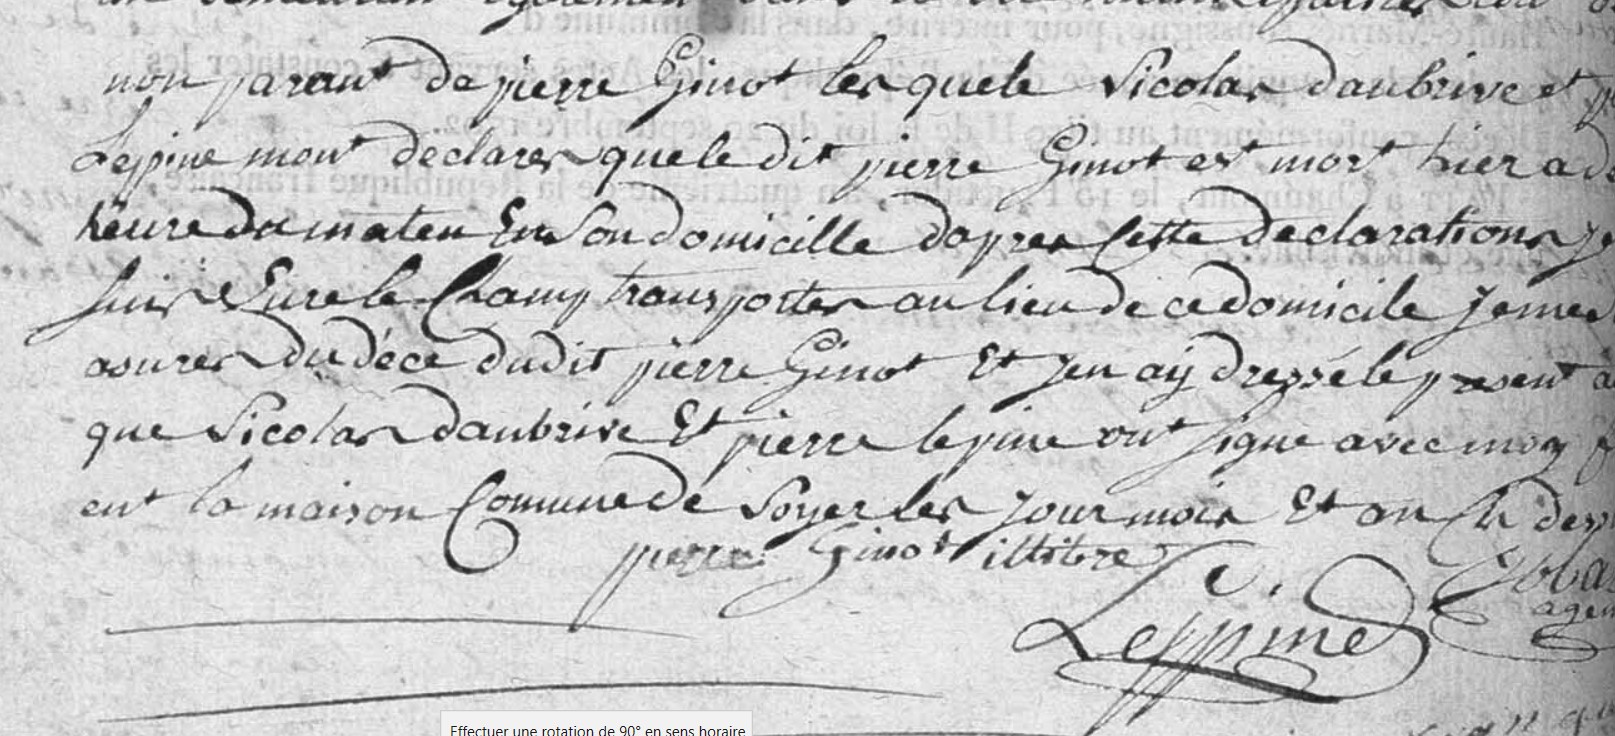 non parant de pierre Ginot les quele Nicolas daubrive et
Leppine mont declarer que le dit pierre Ginot est mort hier a
heure du maten En Son domicille dapres Cette declarations
suis Sure le Champ transporter au lieu de ce domicile
asurer du déce dudit pierre Ginot Et Jen aÿ dressé le present
que Nicolas daubrive Et pierre lepine ont signe avec moy
ent la maison Comune de Soyer les Jour mois Et an
pierre Ginot illitere
Leppine
agen
Effectuer une rotation de 90° en sens horaire